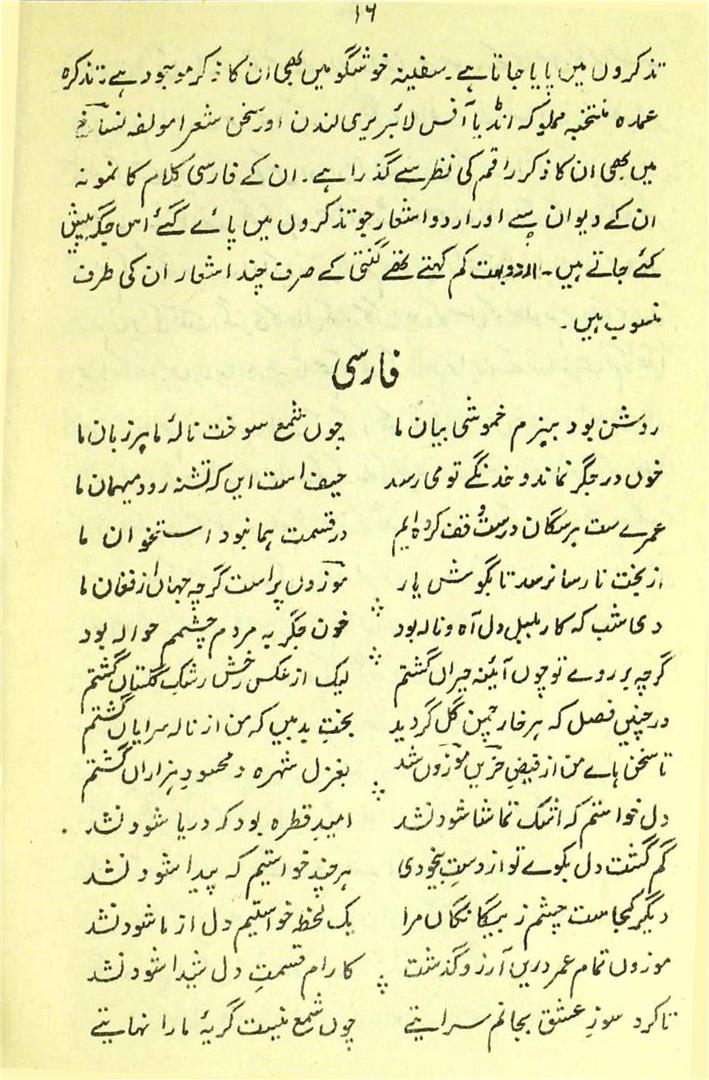 ۱۶
تذکروں میں پایا جاتا ہے۔ سفینہ خوشگو میں بھی ان کا ذکر موجود ہے۔ تذکرہ
عمدہ منتخبہ مملوکہ انڈیا آفس لائبریری لندن اور سخن شعرا مولفہ نساخ
میں بھی ان کا ذکر راقم کی نظر سے گذرا ہے۔ ان کے فارسی کلام کا نمونہ
ان کے دیوان سے اور اردو اشعار جو تذکروں میں پائے گئے اس جگہ پیش
کئے جاتے ہیں۔ اردو بہت کم کہتے تھے گنتی کے صرف چند اشعار ان کی طرف
منسوب ہیں۔
فارسی
روشن بود ببزم خموشی بیان ما چوں شمع سوخت نالۂ ما بر زبان ما
خوں در جگر نماند و خدنگے تو می رسد حیف است ایں کہ تشنہ رود میہمان ما
عمرے ست بر سگان درست وقف کردہ ایم در قسمت ہما نبود استخوان ما
از بخت نارسا نرسد تا بگوش یار موزوں پر است گرچہ جہان از فغان ما
دی شب کہ کار بلبل دل آہ و نالہ بود خون جگر بہ مردم چشمم حوالہ بود
گرچہ بر روے تو چوں آئینہ حیراں گشتم لیک از عکس رخش رشک گلستاں گشتم
در چنیں فصل کہ ہر خار چمن گل گردید بخت بد بیں کہ من از نالہ سرایاں گشتم
تا سخن ہاے من از فیض حزیں موزوں شد بغزل شہرہ و محسود ہزاراں گشتم
دل خواستم کہ اشک تماشا شود نشد امید قطرہ بود کہ دریا شود نشد
گم گشت دل بکوے تو از دست بیخودی ہر چند خواستیم کہ پیدا شود نشد
دیگر کجاست چشم ز بیگانگاں مرا یک لحظہ خواستیم دل از ما شود نشد
موزوں تمام عمر دریں آرزو گذشت کارام قسمت دل شیدا شود نشد
تا کرد سوز عشق بجانم سرایتے چوں شمع نیست گریۂ ما را نہایتے